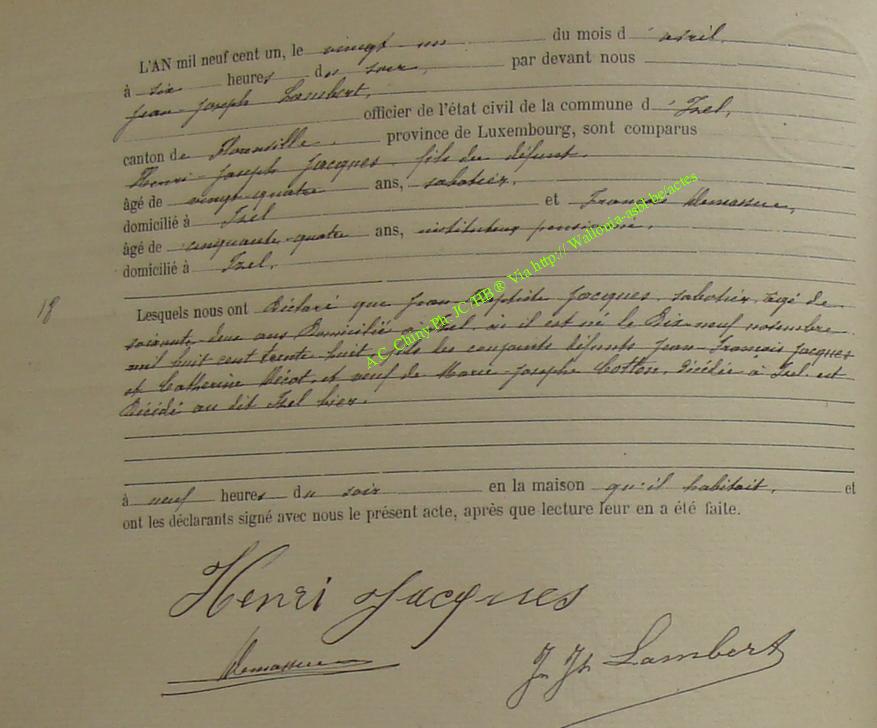 L'AN mil neuf cent un, le vingt-un du mois d'avril,
à six heures du soir, par devant nous
Jean-Joseph Lambert,
officier de l'état civil de la commune d'Izel,
canton de Florenville, province de Luxembourg, sont comparus
Henri-Joseph Jacques, fils du défunt,
âgé de vingt-quatre ans, sabotier,
domicilié à Izel et François
âgé de cinquante-quatre ans, instituteur pensionné,
domicilié à Izel,
18
Lesquels nous ont déclaré que Jean-Baptiste Jacques, sabotier, âgé de
soixante-deux ans domicilié à Izel, où il est né le dix-neuf novembre
mil huit cent trente huit, fils des conjoints défunts Jean-François Jacques
et Catherine et veuf de Marie-Josephe Cotton, décédée à Izel est
décédé au dit Izel hier.
à neuf heures du soir en la maison qu'il habitait, et
ont les déclarants signé avec nous le présent acte, après que lecture leur en a été faite.
Henri Jacques
J. Jh. Lambert
A.C. Chiny Ph. JC HB ® Via http:// Wallonia-asbl.be/actes